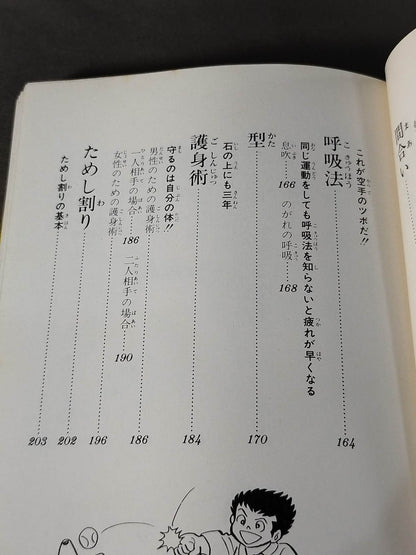 間合い
これが空手のツボだ!!
呼吸法……164
同じ運動をしても呼吸法を知らないと疲れが早くなる
息吹……166 のがれの呼吸……168
型……170
石の上にも三年
護身術……184
守るのは自分の体!!
男性のための護身術……186
一人相手の場合……186 二人相手の場合……190
女性のための護身術……196
ためし割り……202
ためし割りの基本……203